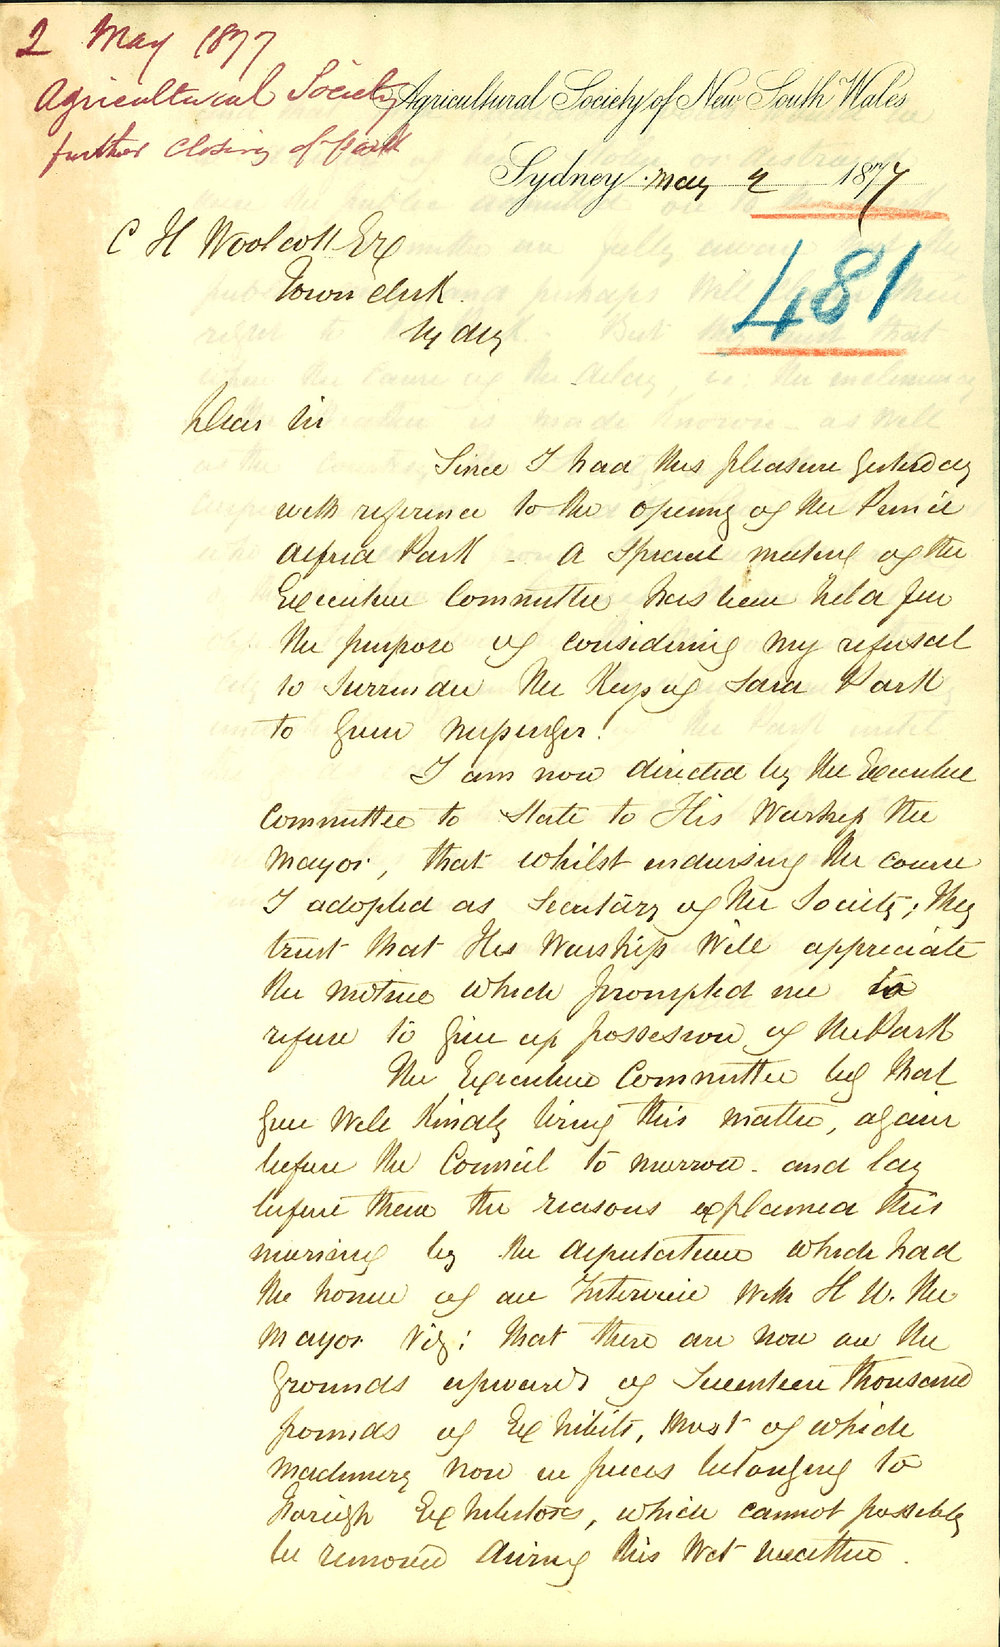 2 May 1877
Agricultural Society
further closing of Park
Agricultural Society of New South Wales
Sydney May 2 1877
481
C H Woolcott Esq
Town Clerk
Sydney
Dear Sir
Since I had this pleasure yesterday
with reference to the opening of the Prince
Alfred Park - A Special meeting of the
Executive Committee has been held for
the purpose of considering my refusal
to Surrender the Keys of Said Park
to your
I am now directed by the Executive
Committee to State to His Worship the
Mayor, that whilst endorsing the course
I adopted as Secretary of the Society; they
trust that His Worship Will appreciate
the motive which prompted me to
refuse to give up possession of the Park
The Executive Committee beg that
you Will Kindly bring this matter, again
before the Council to morrow - and lay
before them the reasons explained this
morning by the deputation which had
the honor of an Interview With H W. the
Mayor Viz: that there are now on the
Grounds upwards of Seventeen thousand
pounds of Exhibits, most of which
Machinery now in pieces belonging to
Foreign Exhibitors, which cannot possibly
be removed during this Wet weather.